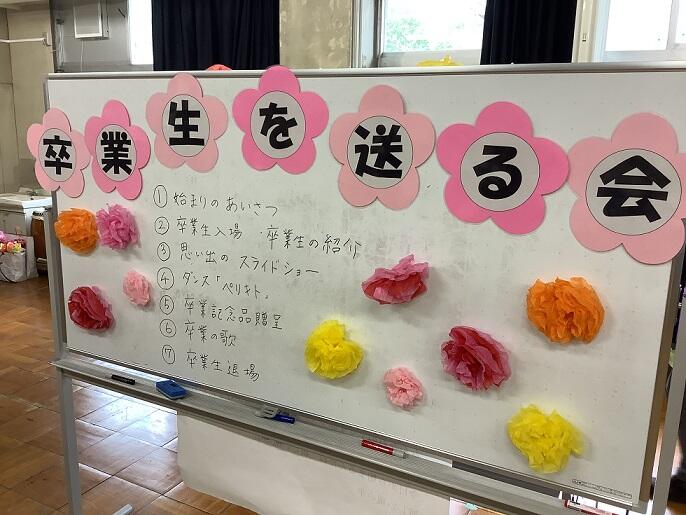 卒業生を送る会
① 始まりのあいさつ
② 卒業生入場・卒業生の紹介
③ 思い出のスライドショー
④ ダンス「ペリキト」
⑤ 卒業記念品贈呈
⑥ 卒業の歌
⑦ 卒業生退場